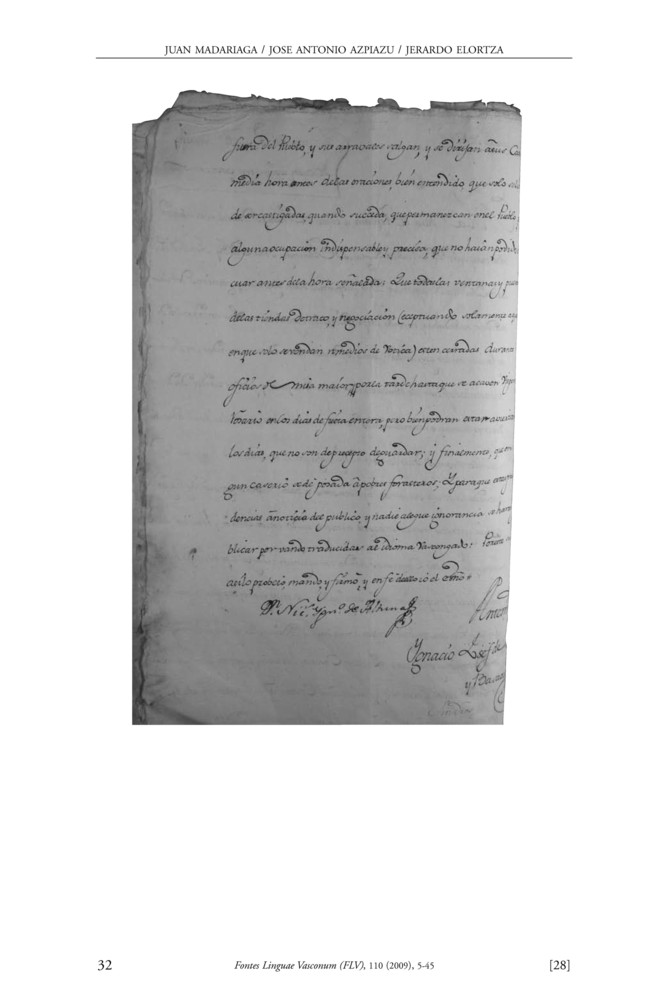 JUAN MADARIAGA / JOSE ANTONIO AZPIAZU / JERARDO ELORTZA
fuera del Pueblo, y sus arravales salgan, y se dirijan a sus
media hora antes delas oraciones, bien entendido que solo
de ser castigadas, quando suceda, que permanezcan en el Pueblo
alguna ocupacion indispensable y precisa, que no haian podido
cuar antes dela hora señalada: Que todas las ventanas y
delas tiendas de trato, y negociación (exceptuando solamente
en que solo se vendan remedios de Votica) esten cerradas durante
oficios de misa maior, y por la tarde hasta que se acaven
en los dias de fiesta entera, pero bien podran estar
los dias, que no son de precepto de guardar; y finalmente, que
gun caserio se dé posada à pobres forasteros; Y para que
dencias à noticia del publico, y nadie alegue ignorancia
blicar por vando traducidas al idioma Vascongado: Por
asi lo proveió, mandó, y firmó, y en fe de ello io el
Ignacio
32
Fontes Linguae Vasconum (FLV), 110 (2009), 5-45
[28]